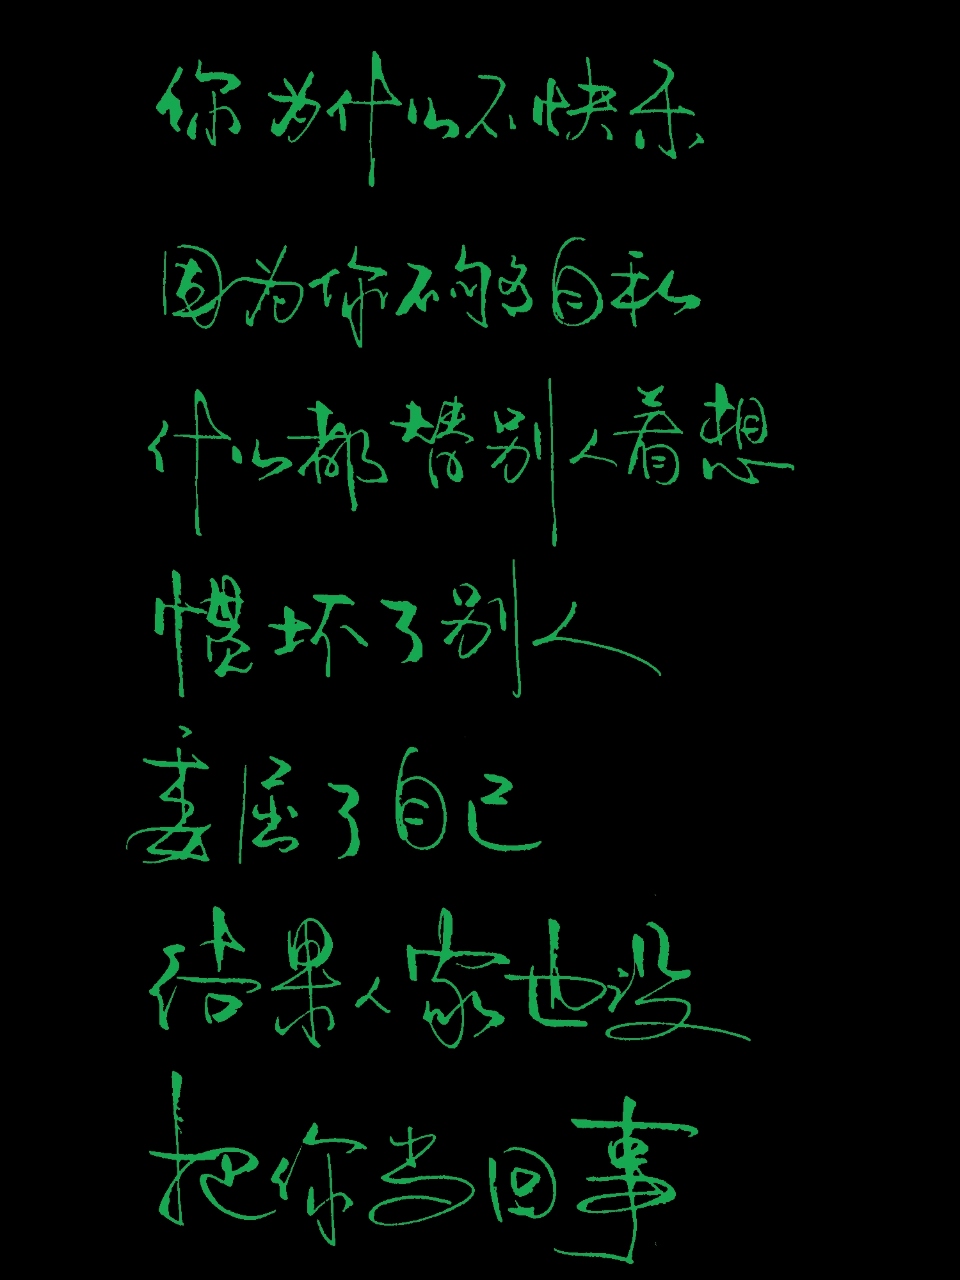 你为什么不快乐
因为你不够自私
什么都替别人着想
惯坏了别人
委屈了自己
结果人家也没
把你当回事